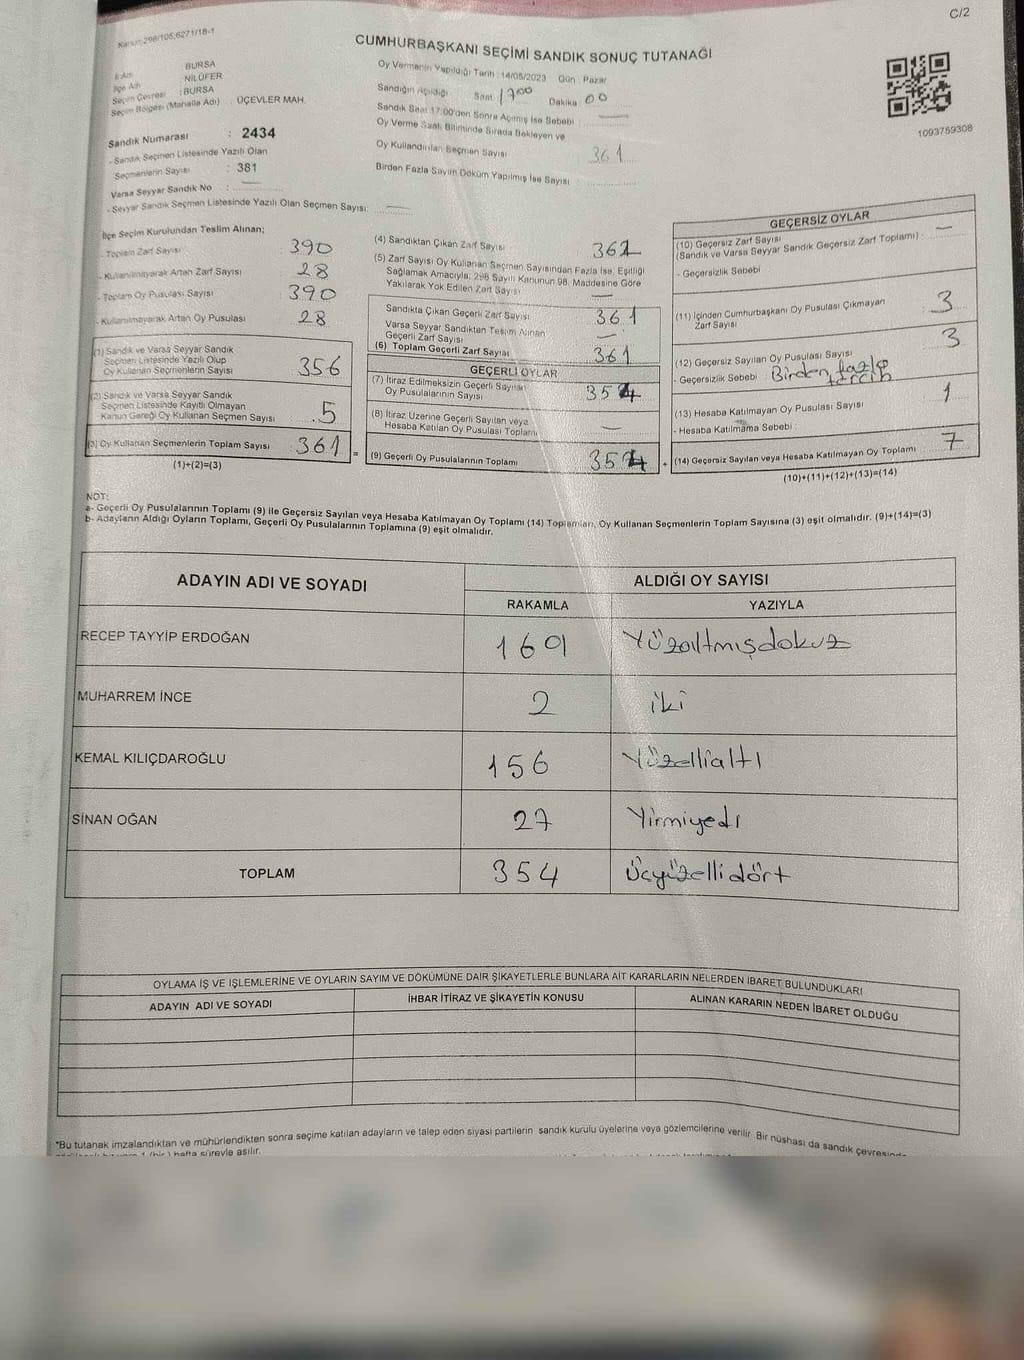 C/2
Kanun:298/105;6271/18-1
CUMHURBAŞKANI SEÇİMİ SANDIK SONUÇ TUTANAĞI
İl Adı BURSA
İlçe Adı NİLÜFER
Seçim Çevresi : BURSA
Seçim Bölgesi (Mahalle Adı) : ÜÇEVLER MAH.
Sandık Numarası : 2434
- Sandık Seçmen Listesinde Yazılı Olan
Seçmenlerin Sayısı : 381
Varsa Seyyar Sandık No :
- Seyyar Sandık Seçmen Listesinde Yazılı Olan Seçmen Sayısı:
Oy Vermenin Yapıldığı Tarih : 14/05/2023 Gün : Pazar
Sandığın Açıldığı Saat 17 00 Dakika 00
Sandık Saat 17:00'den Sonra Açılmış İse Sebebi :
Oy Verme Saati Bitiminde Sırada Bekleyen ve
Oy Kullandırılan Seçmen Sayısı 361
Birden Fazla Sayım Döküm Yapılmış İse Sayısı :
1093759308
İlçe Seçim Kurulundan Teslim Alınan;
- Toplam Zarf Sayısı 390
- Kullanılmayarak Artan Zarf Sayısı 28
- Toplam Oy Pusulası Sayısı 390
- Kullanılmayarak Artan Oy Pusulası 28
(1) Sandık ve Varsa Seyyar Sandık
Seçmen Listesinde Yazılı Olup
Oy Kullanan Seçmenlerin Sayısı 356
(2) Sandık ve Varsa Seyyar Sandık
Seçmen Listesinde Kayıtlı Olmayan
Kanun Gereği Oy Kullanan Seçmen Sayısı 5
(3) Oy Kullanan Seçmenlerin Toplam Sayısı 361 =
(1)+(2)=(3)
(4) Sandıktan Çıkan Zarf Sayısı
(5) Zarf Sayısı Oy Kullanan Seçmen Sayısından Fazla İse, Eşitliği
Sağlamak Amacıyla; 298 Sayılı Kanunun 98. Maddesine Göre
Yakılarak Yok Edilen Zarf Sayısı
Sandıkta Çıkan Geçerli Zarf Sayısı 361
Varsa Seyyar Sandıktan Teslim Alınan
Geçerli Zarf Sayısı
(6) Toplam Geçerli Zarf Sayısı 361
GEÇERLİ OYLAR
(7) İtiraz Edilmeksizin Geçerli Sayılan
Oy Pusulalarının Sayısı 354
(8) İtiraz Üzerine Geçerli Sayılan veya
Hesaba Katılan Oy Pusulası Toplamı
(9) Geçerli Oy Pusulalarının Toplamı 354 +
GEÇERSİZ OYLAR
(10) Geçersiz Zarf Sayısı
(Sandık ve Varsa Seyyar Sandık Geçersiz Zarf Toplamı) :
- Geçersizlik Sebebi
(11) İçinden Cumhurbaşkanı Oy Pusulası Çıkmayan
Zarf Sayısı 3
(12) Geçersiz Sayılan Oy Pusulası Sayısı 3
- Geçersizlik Sebebi : Birden fazla
tercih
(13) Hesaba Katılmayan Oy Pusulası Sayısı 1
- Hesaba Katılmama Sebebi :
(14) Geçersiz Sayılan veya Hesaba Katılmayan Oy Toplamı 7
(10)+(11)+(12)+(13)=(14)
NOT:
a- Geçerli Oy Pusulalarının Toplamı (9) ile Geçersiz Sayılan veya Hesaba Katılmayan Oy Toplamı (14) Toplamları, Oy Kullanan Seçmenlerin Toplam Sayısına (3) eşit olmalıdır. (9)+(14)=(3)
b- Adayların Aldığı Oyların Toplamı, Geçerli Oy Pusulalarının Toplamına (9) eşit olmalıdır.
ADAYIN ADI VE SOYADI ALDIĞI OY SAYISI
RAKAMLA YAZIYLA
RECEP TAYYİP ERDOĞAN 169 Yüzaltmışdokuz
MUHARREM İNCE 2 iki
KEMAL KILIÇDAROĞLU 156 Yüzellialtı
SİNAN OĞAN 27 Yirmiyedi
TOPLAM 354 Üçyüzellidört
OYLAMA İŞ VE İŞLEMLERİNE VE OYLARIN SAYIM VE DÖKÜMÜNE DAİR ŞİKAYETLERLE BUNLARA AİT KARARLARIN NELERDEN İBARET BULUNDUKLARI
ADAYIN ADI VE SOYADI İHBAR İTİRAZ VE ŞİKAYETİN KONUSU ALINAN KARARIN NEDEN İBARET OLDUĞU
*Bu tutanak imzalandıktan ve mühürlendikten sonra seçime katılan adayların ve talep eden siyasi partilerin sandık kurulu üyelerine veya gözlemcilerine verilir. Bir nüshası da sandık çevresinde
1 (bir) hafta süreyle asılır.